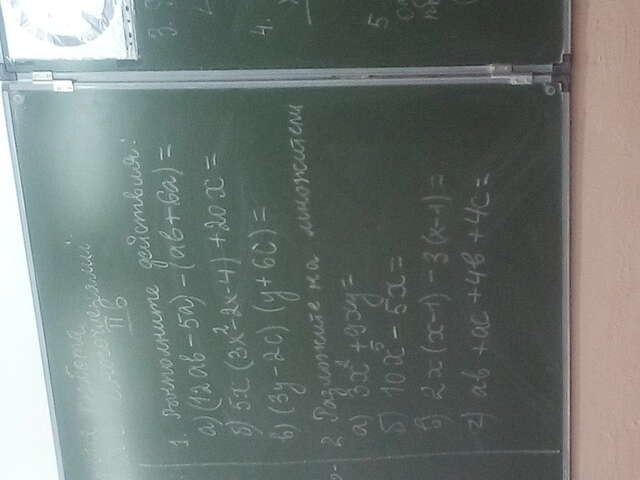 многочленами
II В
1. Выполните действия:
а) (12ab - 5a) - (ab + 6a) =
б) 5x (3x² - 2x - 4) + 20x =
в) (3y - 2c) (y + 6c) =
2 Разложите на множители
а) 3x² + 9xy =
б) 10x⁵ - 5x =
в) 2x(x-1) - 3(x-1) =
г) ab + ac + 4b + 4c =
3.
4.
5